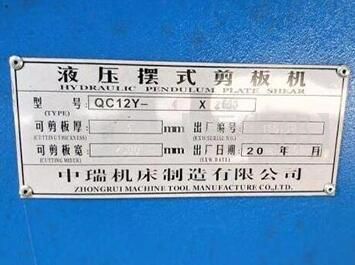 液压摆式剪板机
HYDRAULIC PENDULUM PLATE SHEAR
型号: QC12Y- 4 X
(TYPE)
可剪板厚: mm 出厂编号:
(CUTTING THICKNESS)
可剪板宽: mm 出厂日期: 20 年 月
中瑞机床制造有限公司
ZHONGRUI MACHINE TOOL MANUFACTURE CO.,LTD.